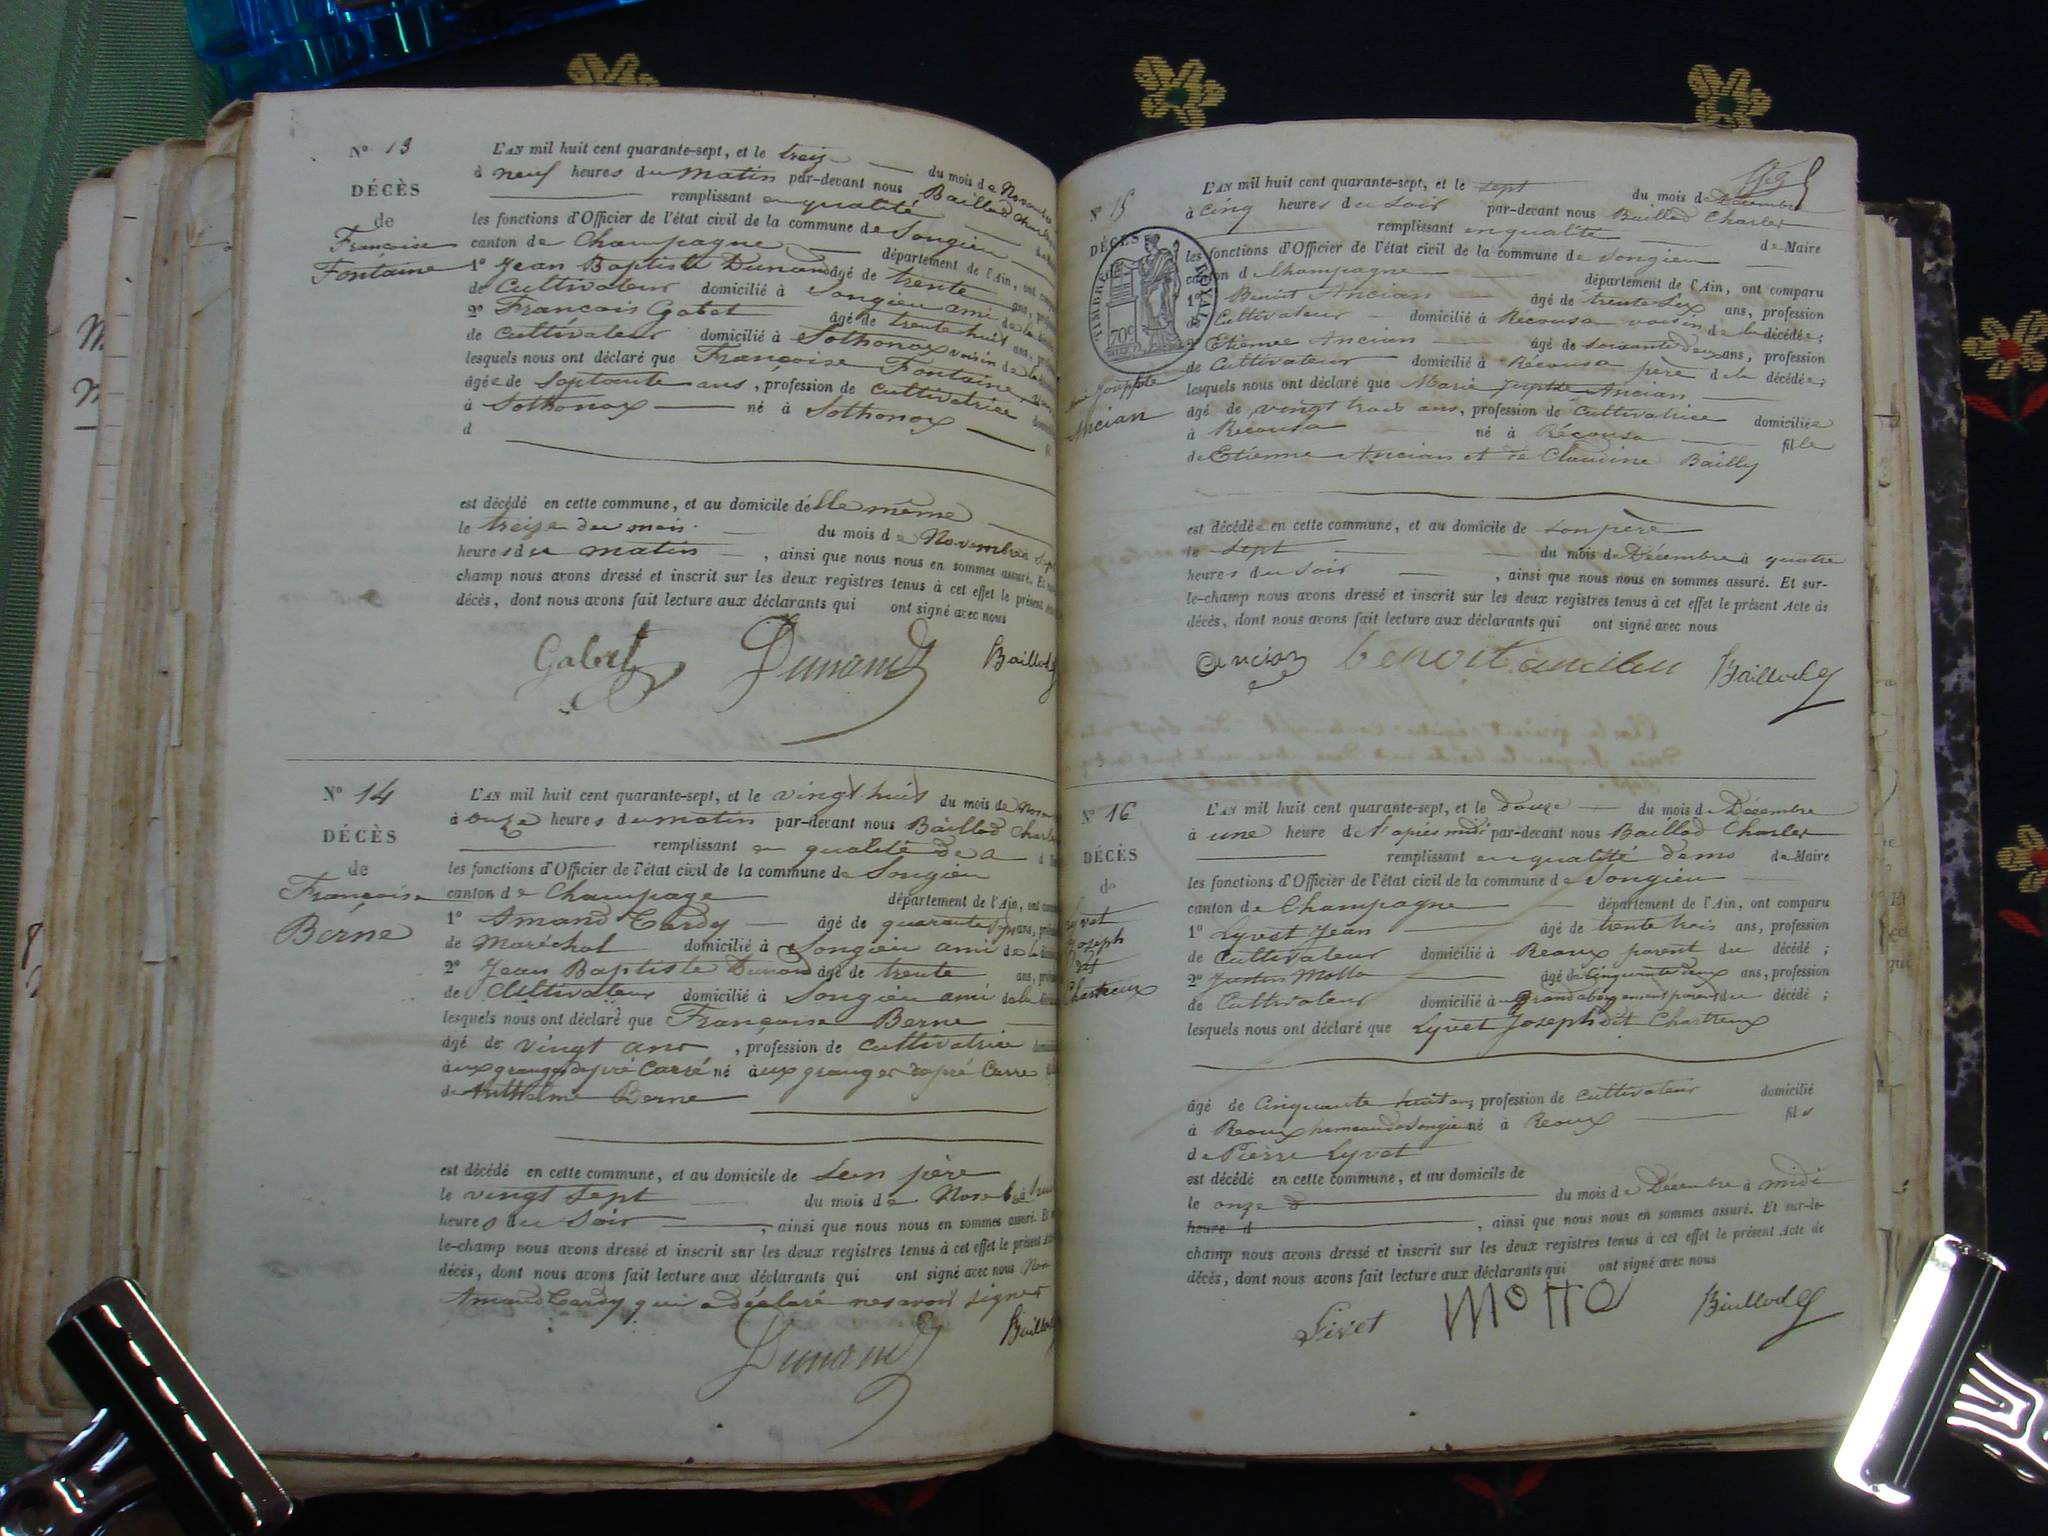 Nº 13
DÉCÈS
de
Françoise
Fontaine
L'AN mil huit cent quarante-sept, et le treize du mois de Novembre
à neuf heures du matin par-devant nous Baillod Charles
remplissant en qualité
les fonctions d'Officier de l'état civil de la commune de Songieu
canton de Champagne département de l'Ain, ont
1º Jean Baptiste Dunand âgé de trente ans,
de Cultivateur domicilié à Songieu ami de la
2º François Gabet âgé de trente huit ans,
de Cultivateur domicilié à Sothonox voisin de la
lesquels nous ont déclaré que Françoise Fontaine
âgée de Soptante ans, profession de Cultivatrice
à Sothonox né à Sothonox
d
est décédé en cette commune, et au domicile d'elle même
le treize du mois du mois de Novembre à Sept
heures du matin, ainsi que nous nous en sommes assuré. Et
champ nous avons dressé et inscrit sur les deux registres tenus à cet effet le présent
décès, dont nous avons fait lecture aux déclarants qui ont signé avec nous
Gabet Dunand Baillod
Nº 14
DÉCÈS
de
Françoise
Berne
L'AN mil huit cent quarante-sept, et le vingt huit du mois de
à onze heures du matin par-devant nous Baillod Charles
remplissant en qualité de
les fonctions d'Officier de l'état civil de la commune de Songieu
canton de Champage département de l'Ain, ont
1º Amand Cardy âgé de quarante ans,
de Maréchal domicilié à Songieu ami de la
2º Jean Baptiste Dunand âgé de trente ans,
de Cultivateur domicilié à Songieu ami de la
lesquels nous ont déclaré que Françoise Berne
âgé de vingt ans, profession de cultivatrice
aux granges du pré Carré né aux granges du pré Carre
de Anthelme Berne
est décédé en cette commune, et au domicile de Son père
le vingt Sept du mois de
heures du Soir, ainsi que nous nous en sommes assuré. Et
le-champ nous avons dressé et inscrit sur les deux registres tenus à cet effet le présent
décès, dont nous avons fait lecture aux déclarants qui ont signé avec nous Non
Amand Cardy qui a déclaré ne savoir signer
Dunand Baillod
Nº 15
DÉCÈS
TIMBRE ROYAL
70c
Jouphte
Ancian
L'AN mil huit cent quarante-sept, et le sept du mois de Décembre
à Cinq heures du Soir par-devant nous Baillod Charles
remplissant en qualité de Maire
les fonctions d'Officier de l'état civil de la commune de Songieu
canton d Champagne département de l'Ain, ont comparu
1º Benoit Ancian âgé de trente Six ans, profession
de Cultivateur domicilié à Récousa voisin de la décédée;
2º Etienne Ancian âgé de soixante deux ans, profession
de Cultivateur domicilié à Récousa père de la décédée;
lesquels nous ont déclaré que Marie Jouphte Ancian
âgé de vingt trois ans, profession de Cultivatrice domiciliée
à Récousa né à Récousa fille
de Etienne Ancian et de Claudine Bailly
est décédée en cette commune, et au domicile de son père
le Sept du mois de Décembre à quatre
heures du Soir, ainsi que nous nous en sommes assuré. Et sur-
le-champ nous avons dressé et inscrit sur les deux registres tenus à cet effet le présent Acte de
décès, dont nous avons fait lecture aux déclarants qui ont signé avec nous
ancian benoit ancian Baillod
Nº 16
DÉCÈS
de
Lyvet
Joseph
dit
Chartreux
L'AN mil huit cent quarante-sept, et le douze du mois de Décembre
à une heure d l'après midi par-devant nous Baillod Charles
remplissant en qualité de Maire
les fonctions d'Officier de l'état civil de la commune de Songieu
canton de Champagne département de l'Ain, ont comparu
1º Lyvet Jean âgé de trente trois ans, profession
de Cultivateur domicilié à Reoux parent du décédé;
2º Justin Motto âgé de cinquante deux ans, profession
de Cultivateur domicilié au Grand abergement parent du décédé;
lesquels nous ont déclaré que Lyvet Joseph dit Chartreux
âgé de Cinquante huit ans, profession de Cultivateur domicilié
à Reoux hameau de Songieu né à Reoux fils
de Pierre Lyvet
est décédé en cette commune, et au domicile de
le onze d du mois de Décembre à midi
heure d, ainsi que nous nous en sommes assuré. Et sur-le-
champ nous avons dressé et inscrit sur les deux registres tenus à cet effet le présent Acte de
décès, dont nous avons fait lecture aux déclarants qui ont signé avec nous
Livet Motto Baillod